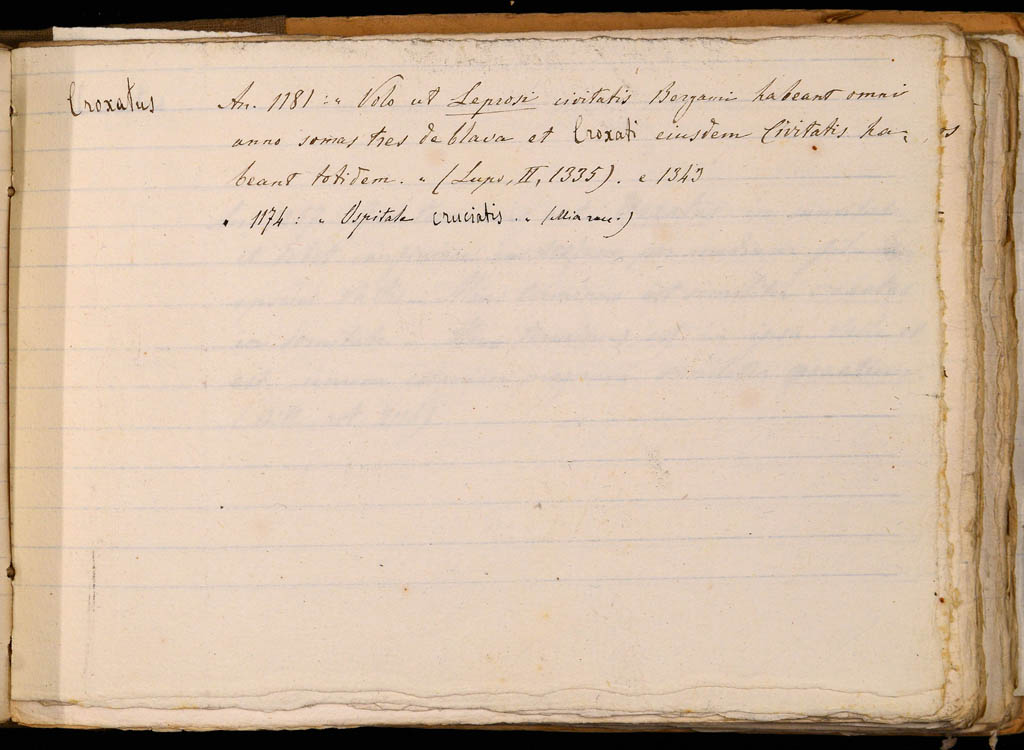 Croxatus An. 1181: " Volo ut Leprosi civitatis Bergami habeant omni
anno somas tres de blava et Croxati eiusdem Civitatis ha-
beant totidem. " (Lupo, II, 1335). e 1343
" 1174: " Ospitale cruciatis. "